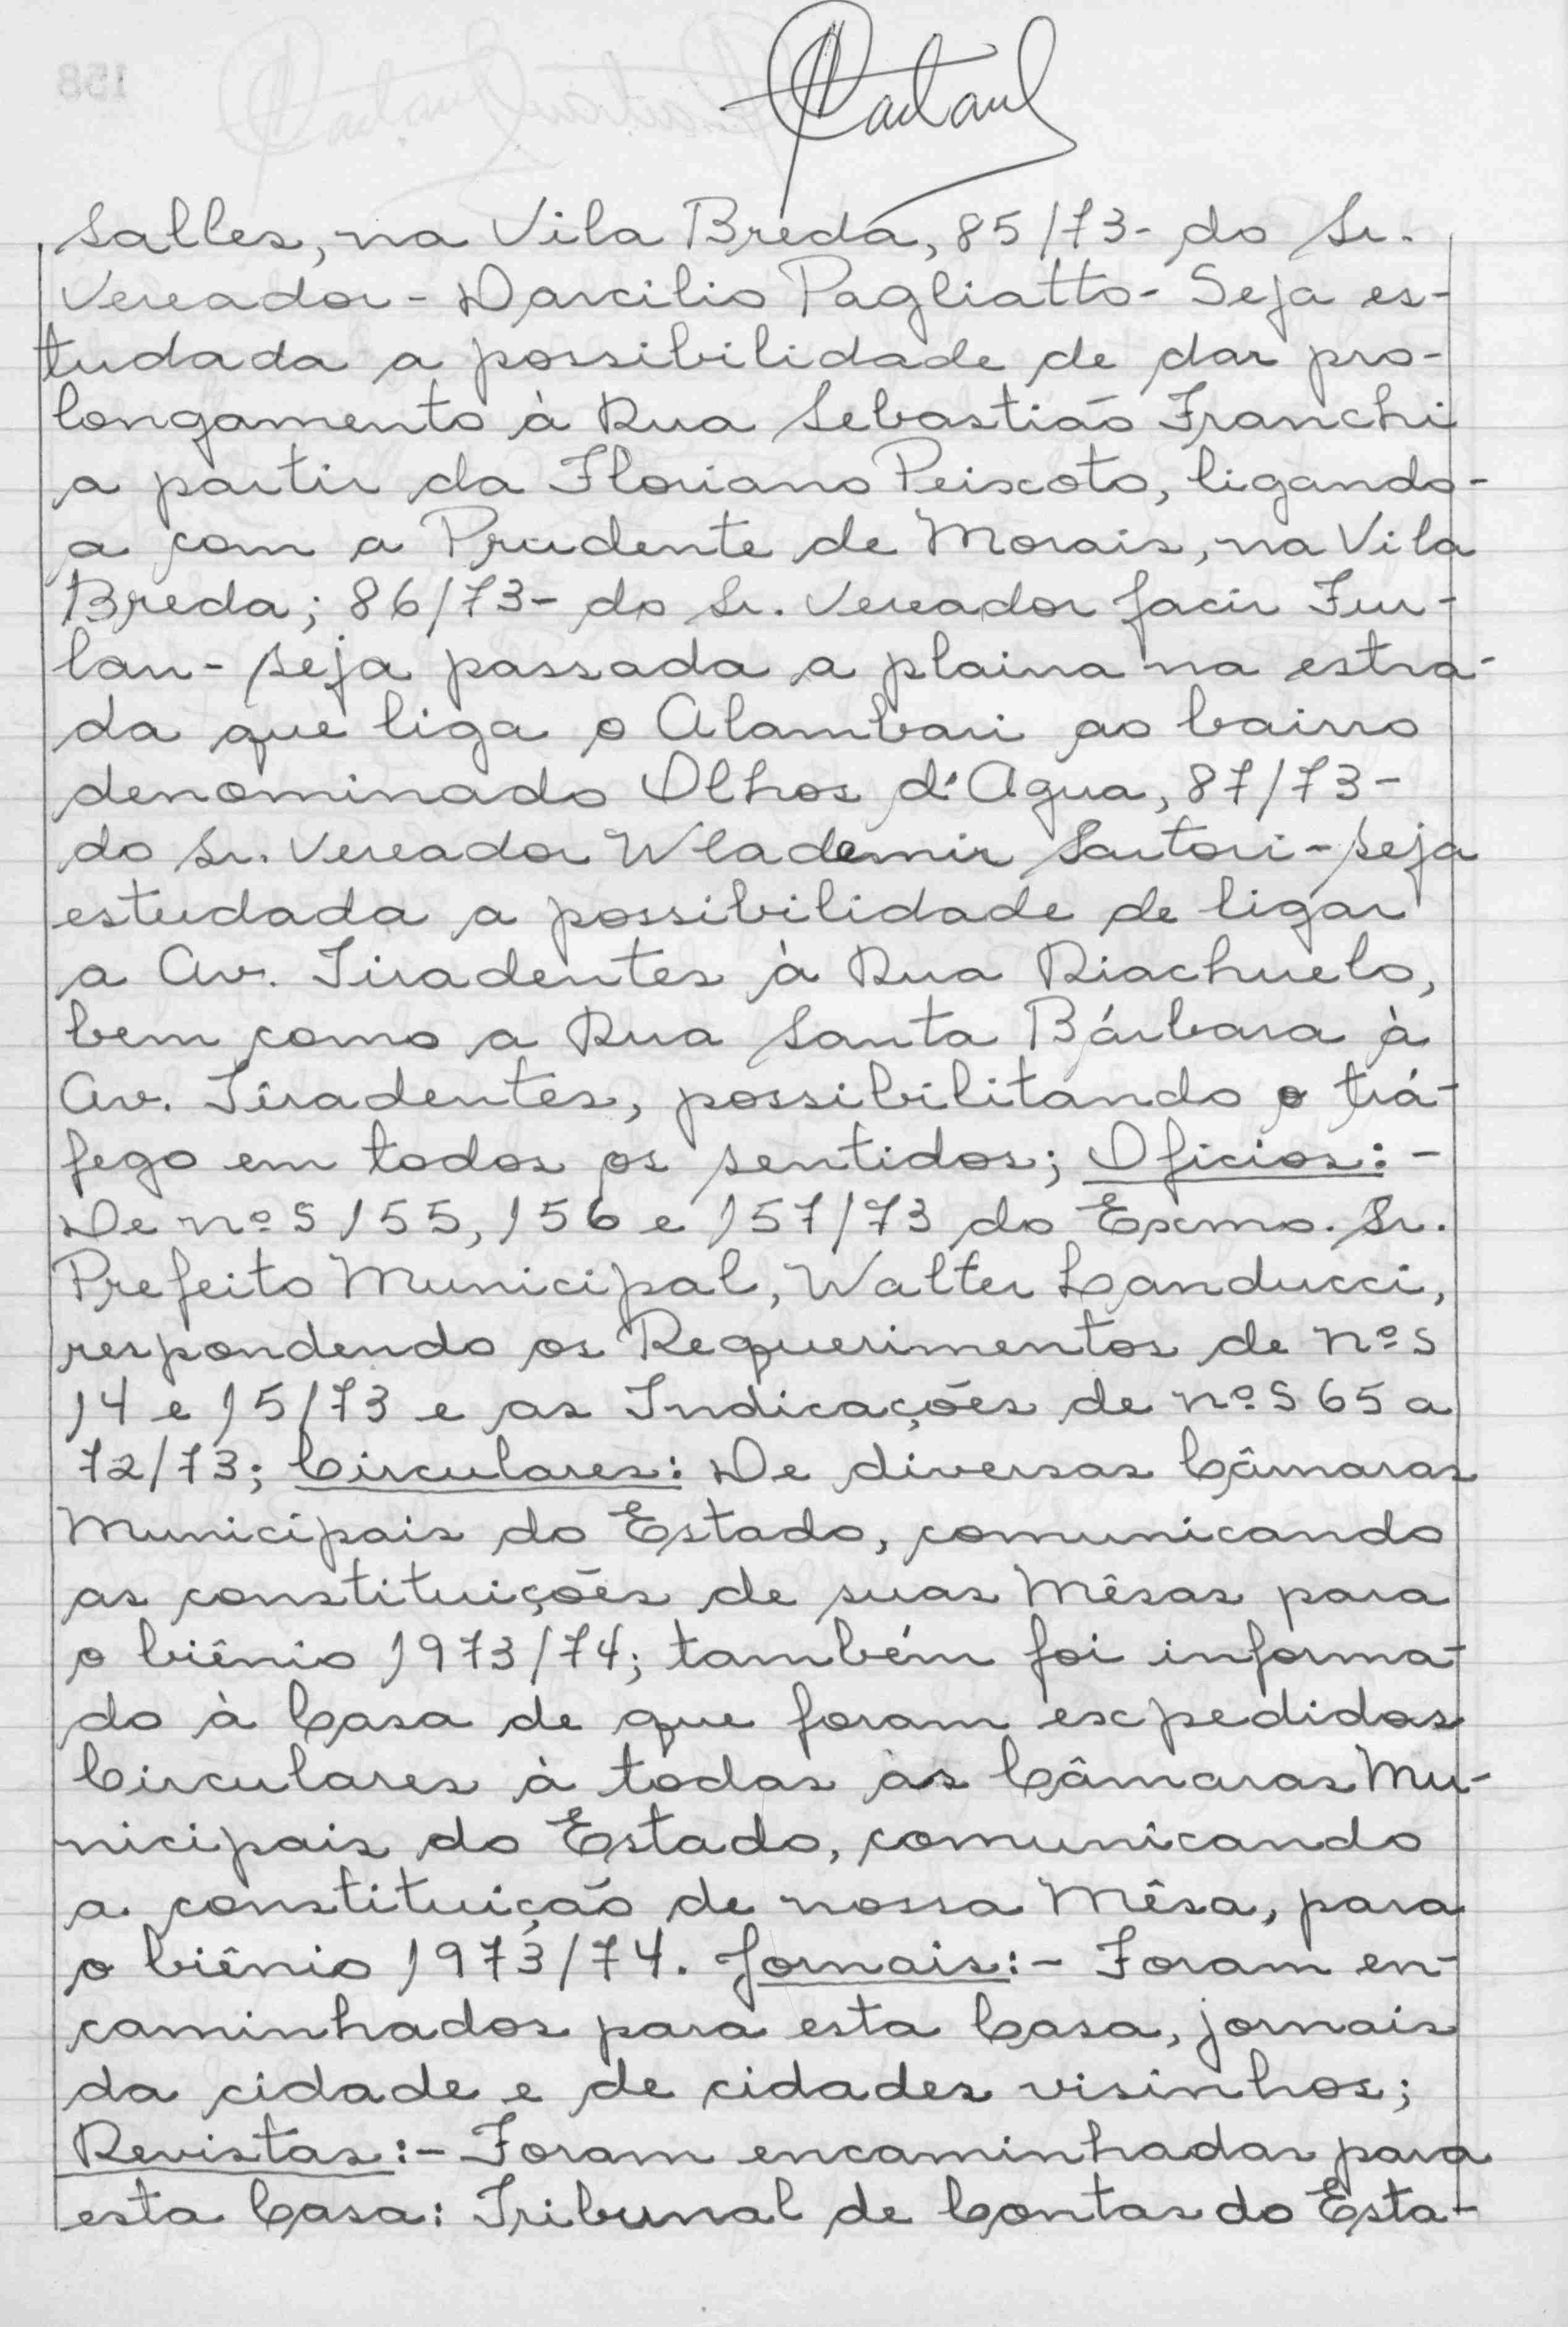 Salles, na Vila Breda, 85/73- do Sr.
Vereador - Darcilio Pagliatto - Seja es-
tudada a possibilidade de dar pro-
longamento à Rua Sebastião Franchi
a partir da Floriano Peixoto, ligando-
a com a Prudente de Morais, na Vila
Breda; 86/73- do Sr. Vereador Jacir Fur-
lan - seja passada a plaina na estra-
da que liga o Alambari ao bairro
denominado Olhos d'Agua, 87/73-
do Sr. Vereador Wlademir Sartori - seja
estudada a possibilidade de ligar
a Av. Tiradentes à Rua Riachuelo,
bem como a Rua Santa Bárbara à
Av. Tiradentes, possibilitando o trá-
fego em todos os sentidos; Oficios: -
De nºs 155, 156 e 157/73 do Exmo. Sr.
Prefeito Municipal, Walter Landucci,
respondendo os Requerimentos de nºs
14 e 15/73 e as Indicações de nºs 65 a
72/73; Circulares: De diversas Câmaras
Municipais do Estado, comunicando
as constituições de suas Mêsas para
o biênio 1973/74; também foi informa-
do à Casa de que foram expedidas
Circulares à todas as Câmaras Mu-
nicipais do Estado, comunicando
a constituição de nossa Mêsa, para
o biênio 1973/74. Jornais: - Foram en-
caminhados para esta Casa, jornais
da cidade e de cidades visinhos;
Revistas: - Foram encaminhadas para
esta Casa: Tribunal de Contas do Esta-